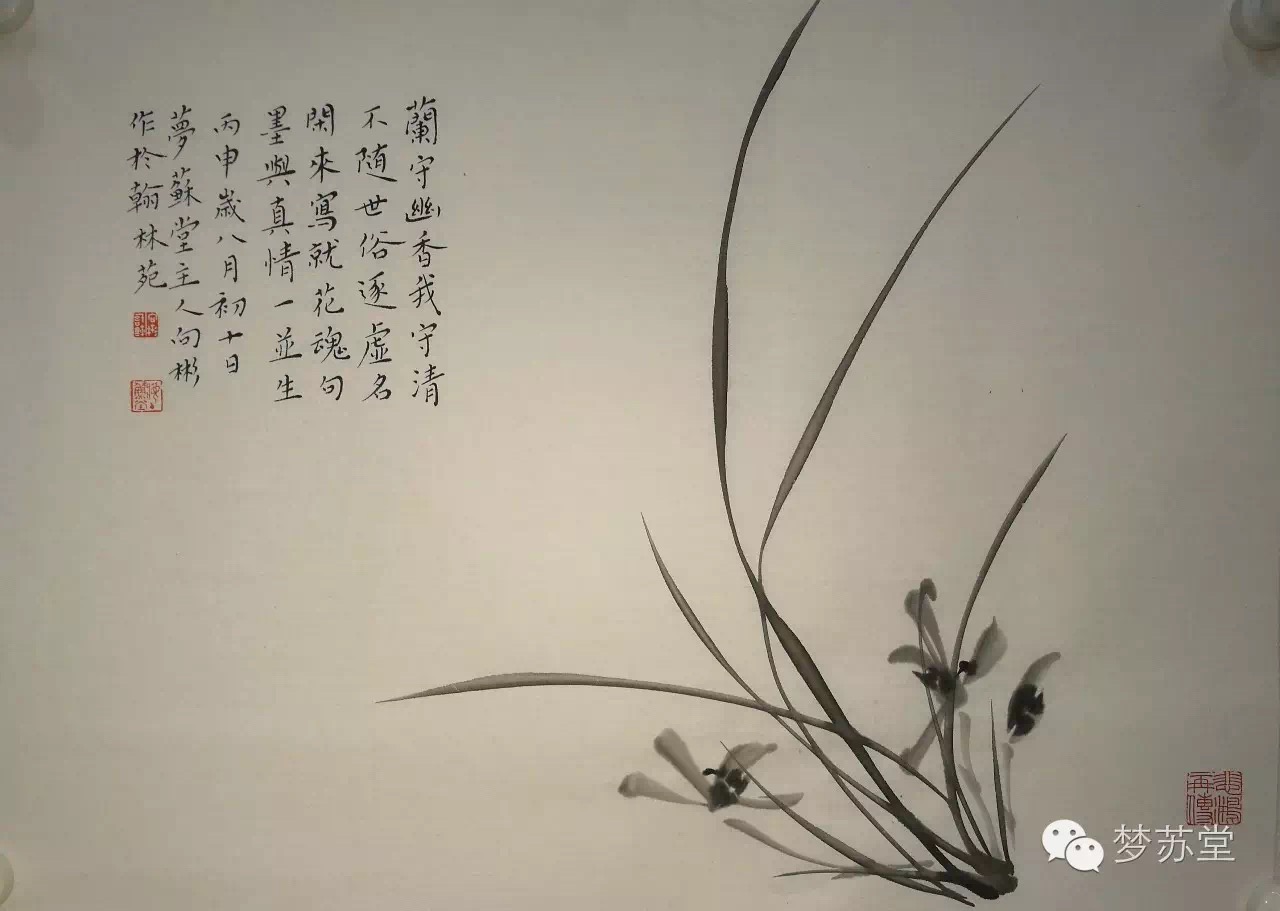 蘭守幽香我守清
不随世俗逐虛名
閑來寫就花魂句
墨與真情一並生
丙申歲八月初十日
夢蘇堂主人向彬
作於翰林苑
悲鴻
再傳
梦苏堂